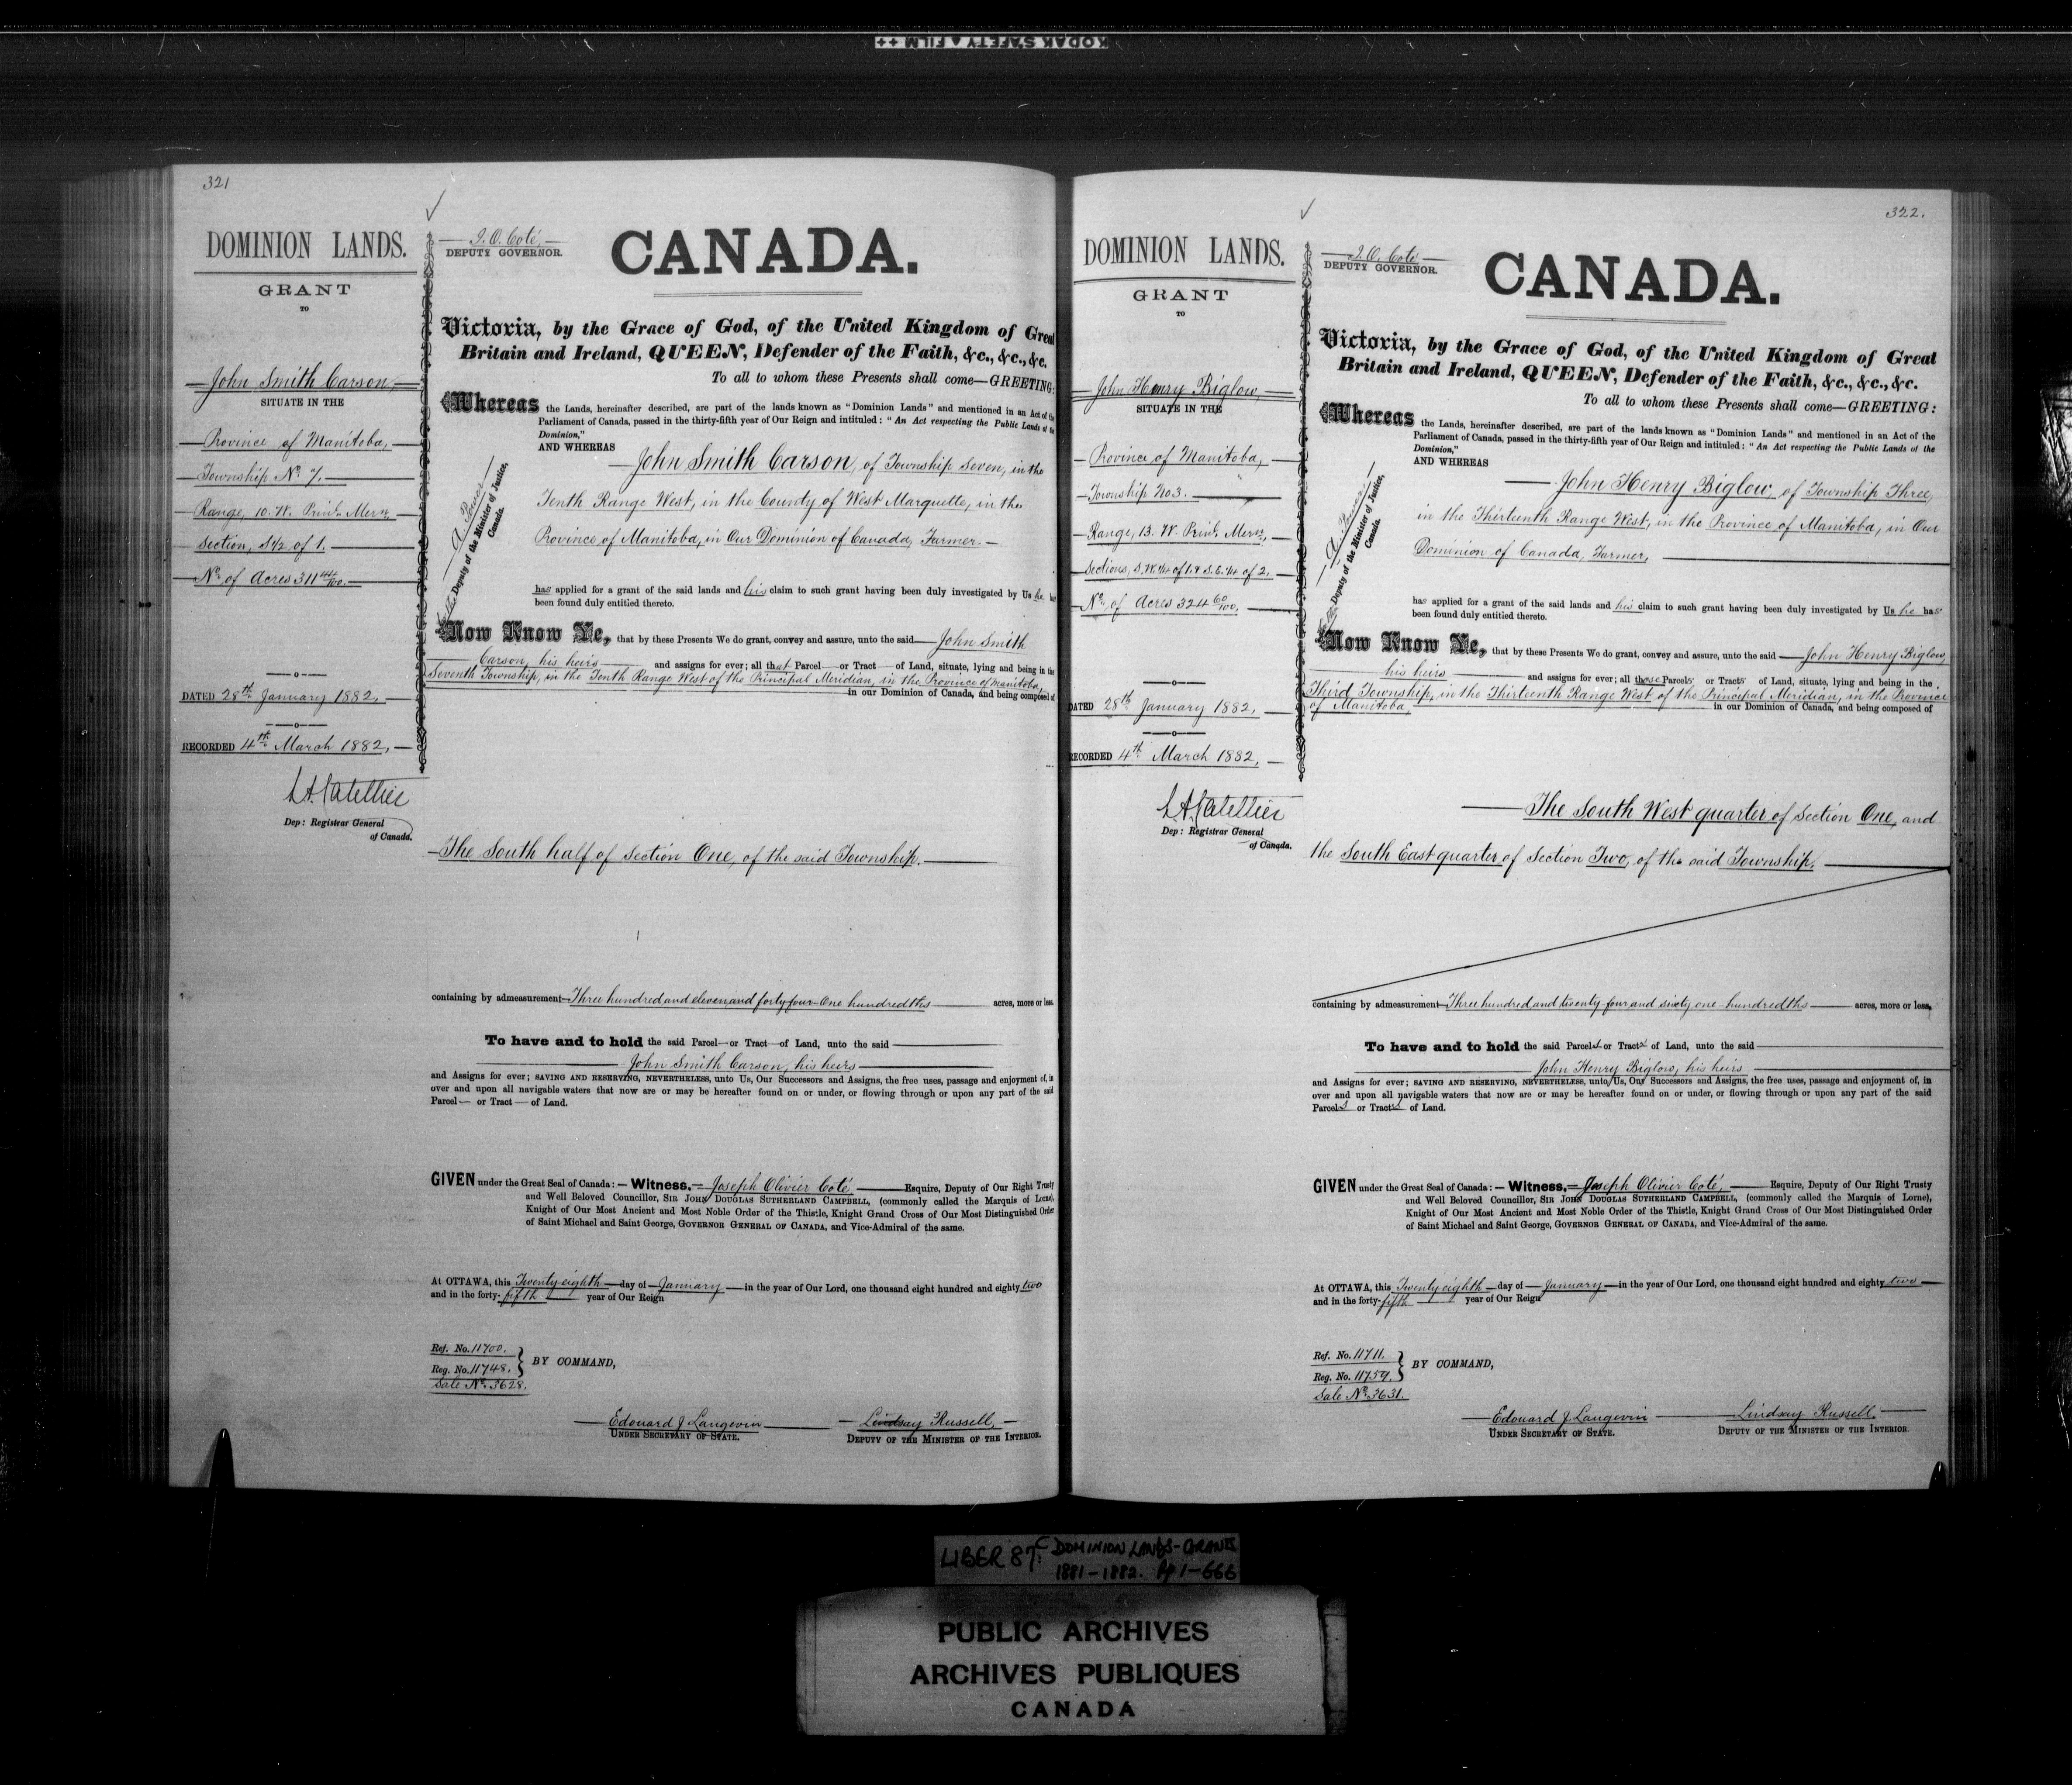 KODAK SAFETY FILM ++
321
DOMINION LANDS.
GRANT
TO
John Smith Carson,
SITUATE IN THE
Province of Manitoba,
Township No. 7.
Range, 10. W. Prinl. Mern.
Section, S1/2 of 1.
No. of Acres 311 44/100.
DATED 28th January 1882,
RECORDED 4th March 1882,
Dep: Registrar General
of Canada.
J. O. Coté,
DEPUTY GOVERNOR.
CANADA.
Victoria, by the Grace of God, of the United Kingdom of Great
Britain and Ireland, QUEEN, Defender of the Faith, &c., &c., &c.
To all to whom these Presents shall come—GREETING:
A. Power
Deputy of the Minister of Justice,
Canada.
Whereas the Lands, hereinafter described, are part of the lands known as "Dominion Lands" and mentioned in an Act of the
Parliament of Canada, passed in the thirty-fifth year of Our Reign and intituled: "An Act respecting the Public Lands of the
Dominion,"
AND WHEREAS
John Smith Carson, of Township Seven, in the
Tenth Range West, in the County of West Marquette, in the
Province of Manitoba, in Our Dominion of Canada, Farmer.—
has applied for a grant of the said lands and his claim to such grant having been duly investigated by Us he has
been found duly entitled thereto.
Now Know Ye, that by these Presents We do grant, convey and assure, unto the said John Smith
Carson, his heirs and assigns for ever; all that Parcel—or Tract—of Land, situate, lying and being in the
Seventh Township, in the Tenth Range West of the Principal Meridian, in the Province of Manitoba,
in our Dominion of Canada, and being composed of
The South half of Section One, of the said Township.
containing by admeasurement Three hundred and eleven and forty four-One hundredths acres, more or less.
To have and to hold the said Parcel—or Tract—of Land, unto the said
John Smith Carson, his heirs
and Assigns for ever; SAVING AND RESERVING, NEVERTHELESS, unto Us, Our Successors and Assigns, the free uses, passage and enjoyment of, in
over and upon all navigable waters that now are or may be hereafter found on or under, or flowing through or upon any part of the said
Parcel— or Tract — of Land.
GIVEN under the Great Seal of Canada:—Witness,—Joseph Olivier Coté, Esquire, Deputy of Our Right Trusty
and Well Beloved Councillor, SIR JOHN DOUGLAS SUTHERLAND CAMPBELL, (commonly called the Marquis of Lorne),
Knight of Our Most Ancient and Most Noble Order of the Thistle, Knight Grand Cross of Our Most Distinguished Order
of Saint Michael and Saint George, GOVERNOR GENERAL OF CANADA, and Vice-Admiral of the same.
At OTTAWA, this Twenty eighth day of January in the year of Our Lord, one thousand eight hundred and eighty two
and in the forty-fifth year of Our Reign
Ref. No. 11700.
Reg. No. 11748.
Sale No. 3628.
BY COMMAND,
Edouard J. Langevin
UNDER SECRETARY OF STATE.
Lindsay Russell,
DEPUTY OF THE MINISTER OF THE INTERIOR.
322.
DOMINION LANDS.
GRANT
TO
John Henry Biglow,
SITUATE IN THE
Province of Manitoba,
Township No 3.
Range, 13. W. Prinl. Mern.,
Sections, S.W.1/4 of 1. & S.E.1/4 of 2.
No. of Acres 324 60/100,
DATED 28th January 1882,
RECORDED 4th March 1882,
Dep: Registrar General
of Canada.
J. O. Coté
DEPUTY GOVERNOR.
CANADA.
Victoria, by the Grace of God, of the United Kingdom of Great
Britain and Ireland, QUEEN, Defender of the Faith, &c., &c., &c.
To all to whom these Presents shall come—GREETING:
A. Power
Deputy of the Minister of Justice,
Canada.
Whereas the Lands, hereinafter described, are part of the lands known as "Dominion Lands" and mentioned in an Act of the
Parliament of Canada, passed in the thirty-fifth year of Our Reign and intituled: "An Act respecting the Public Lands of the
Dominion,"
AND WHEREAS
John Henry Biglow, of Township Three,
in the Thirteenth Range West, in the Province of Manitoba, in Our
Dominion of Canada, Farmer,
has applied for a grant of the said lands and his claim to such grant having been duly investigated by Us he has
been found duly entitled thereto.
Now Know Ye, that by these Presents We do grant, convey and assure, unto the said John Henry Biglow,
his heirs and assigns for ever; all those Parcels or Tracts of Land, situate, lying and being in the
Third Township, in the Thirteenth Range West of the Principal Meridian, in the Province
of Manitoba, in our Dominion of Canada, and being composed of
The South West quarter of Section One, and
the South East quarter of Section Two, of the said Township.
containing by admeasurement Three hundred and twenty-four and sixty one-hundredths acres, more or less,
To have and to hold the said Parcels or Tracts of Land, unto the said
John Henry Biglow, his heirs
and Assigns for ever; SAVING AND RESERVING, NEVERTHELESS, unto Us, Our Successors and Assigns, the free uses, passage and enjoyment of, in
over and upon all navigable waters that now are or may be hereafter found on or under, or flowing through or upon any part of the said
Parcels or Tracts of Land.
GIVEN under the Great Seal of Canada:—Witness,—Joseph Olivier Coté, Esquire, Deputy of Our Right Trusty
and Well Beloved Councillor, SIR JOHN DOUGLAS SUTHERLAND CAMPBELL, (commonly called the Marquis of Lorne),
Knight of Our Most Ancient and Most Noble Order of the Thistle, Knight Grand Cross of Our Most Distinguished Order
of Saint Michael and Saint George, GOVERNOR GENERAL OF CANADA, and Vice-Admiral of the same.
At OTTAWA, this Twenty eighth day of January in the year of Our Lord, one thousand eight hundred and eighty two
and in the forty-fifth year of Our Reign
Ref. No. 11711.
Reg. No. 11759.
Sale No. 3631.
BY COMMAND,
Edouard J. Langevin
UNDER SECRETARY OF STATE.
Lindsay Russell,
DEPUTY OF THE MINISTER OF THE INTERIOR.
LIBER 87C: DOMINION LANDS-GRANTS
1881-1882. Pp 1-666
PUBLIC ARCHIVES
ARCHIVES PUBLIQUES
CANADA